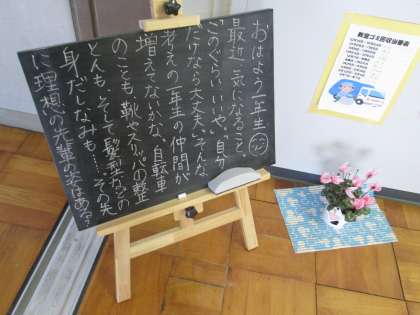 おはよう一年生
最近、気になること。
「このぐらいいいや。」「自分
だけなら大丈夫」そんな
考えの一年生の仲間が
増えてないかな、自転車
のことも、靴やスリッパの整
とんも、そして髪型などの
身だしなみも…。その先
に理想の先輩の姿はある?
教室ゴミ回収当番会